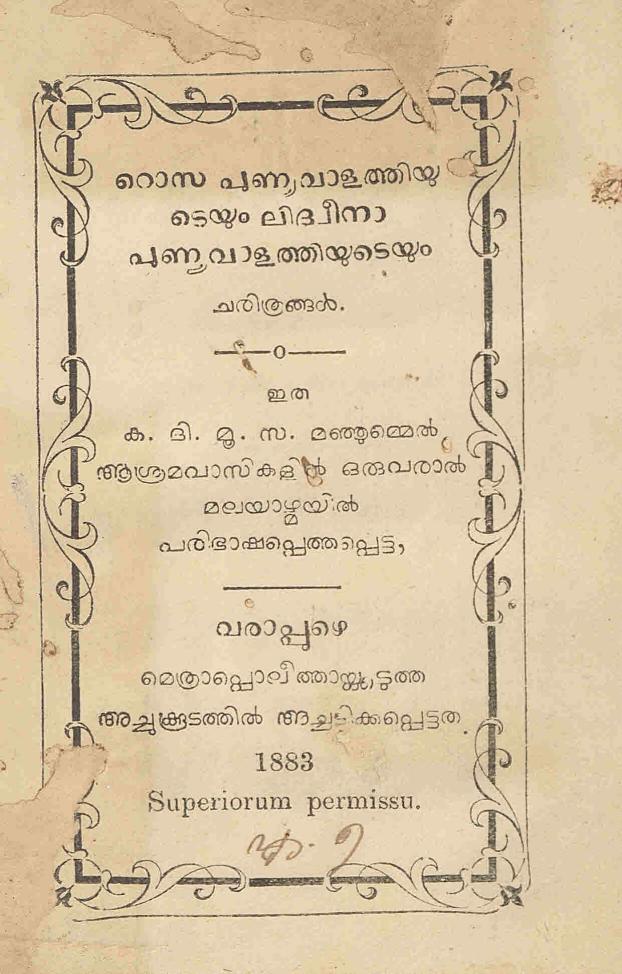 റൊസ പുണ്യവാളത്തിയു
ടെയും ലിദ്വീനാ
പുണ്യവാളത്തിയുടെയും
ചരിത്രങ്ങൾ.
ഇത
ക. ദി. മൂ. സ. മഞ്ഞുമ്മെൽ
ആശ്രമവാസികളിൽ ഒരുവരാൽ
മലയാഴ്മയിൽ
പരിഭാഷപ്പെത്തപ്പെട്ട,
വരാപ്പുഴെ
അച്ചുക്കൂടത്തിൽ അച്ചടിക്കപ്പെട്ടത.
1883
Superiorum permissu.